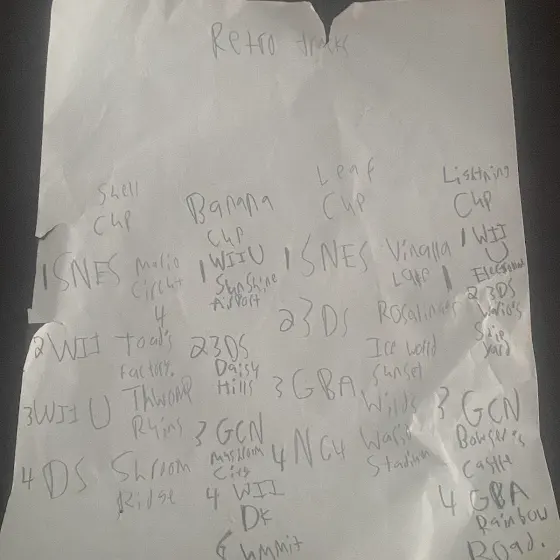 Retro tracks
Shell
Cup
1 SNES Mario
Circuit
4
2 WII Toad's
Factory.
3 WII U Thwomp
Ruins
4 DS Shroom
Ridge
Banana
Cup
1 WII U
Sunshine
Airport
2 3DS
Daisy
Hills
3 GCN
Mushroom
City
4 WII
DK
Summit
Leaf
Cup
1 SNES Vinalla
Lake 1
2 3DS Rosalina's
Ice world
3 GBA Sunset
Wilds
4 N64 Wario
Stadium
Lightning
Cup
1 WII
U
2 3DS
Wario's
Ship
yard
3 GCN
Bowser's
Castle
4 GBA
Rainbow
Road.